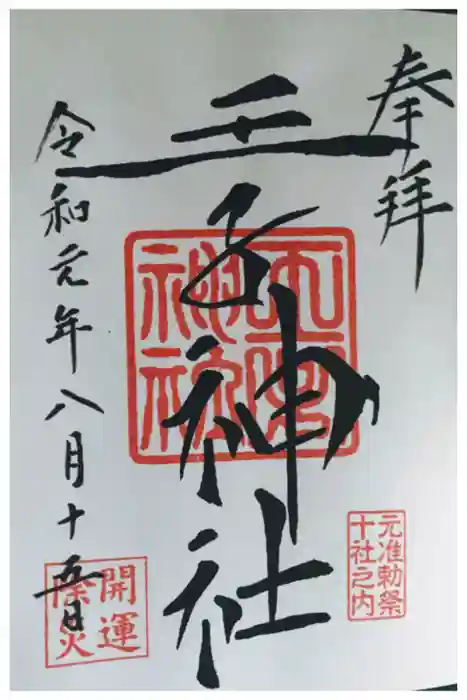 奉拝
王子神社
令和元年八月十五日
元准勅祭
十社之内
開運
除災